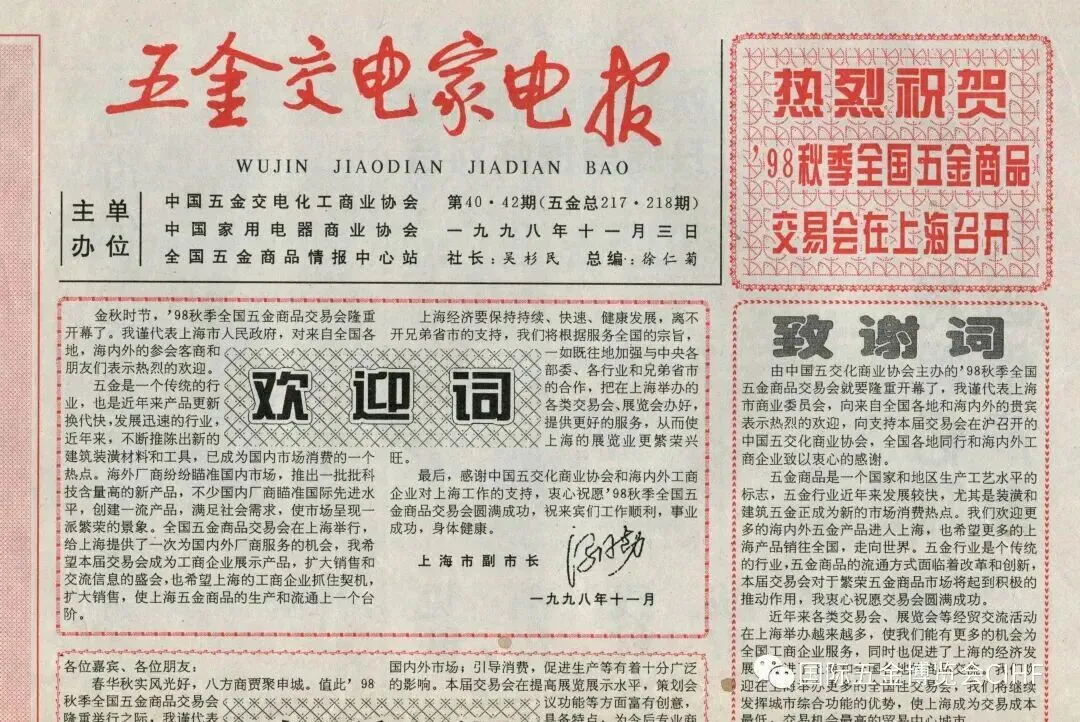 五金交电家电报
WUJIN JIAODIAN JIADIAN BAO
主办
单位
中国五金交电化工商业协会
中国家用电器商业协会
全国五金商品情报中心站
第40·42期(五金总217·218期)
一九九八年十一月三日
社长:吴杉民 总编:徐仁菊
热烈祝贺
'98秋季全国五金商品
交易会在上海召开
欢迎词
金秋时节,'98秋季全国五金商品交易会隆重
开幕了。我谨代表上海市人民政府,对来自全国各
地,海内外的参会客商和
朋友们表示热烈的欢迎。
五金是一个传统的行
业,也是近年来产品更新
换代快,发展迅速的行业,
近年来,不断推陈出新的
建筑装潢材料和工具,已成为国内市场消费的一个
热点。海外厂商纷纷瞄准国内市场,推出一批批科
技含量高的新产品,不少国内厂商瞄准国际先进水
平,创建一流产品,满足社会需求,使市场呈现一
派繁荣的景象。全国五金商品交易会在上海举行,
给上海提供了一次为国内外厂商服务的机会,我希
望本届交易会成为工商企业展示产品,扩大销售和
交流信息的盛会,也希望上海的工商企业抓住契机,
扩大销售,使上海五金商品的生产和流通上一个台
阶。
上海经济要保持持续、快速、健康发展,离不
开兄弟省市的支持,我们将根据服务全国的宗旨,
一如既往地加强与中央各
部委、各行业和兄弟省市
的合作,把在上海举办的
各类交易会、展览会办好,
提供更好的服务,从而使
上海的展览业更繁荣兴
旺。
最后,感谢中国五交化商业协会和海内外工商
企业对上海工作的支持,衷心祝愿'98秋季全国五
金商品交易会圆满成功,祝来宾们工作顺利,事业
成功,身体健康。
上海市副市长
一九九八年十一月
致谢词
由中国五交化商业协会主办的'98秋季全国
五金商品交易会就要隆重开幕了,我谨代表上海
市商业委员会,向来自全国各地和海内外的贵宾
表示热烈的欢迎,向支持本届交易会在沪召开的
中国五交化商业协会,全国各地同行和海内外工
商企业致以衷心的感谢。
五金商品是一个国家和地区生产工艺水平的
标志,五金行业近年来发展较快,尤其是装潢和
建筑五金正成为新的市场消费热点。我们欢迎更
多的海内外五金产品进入上海,也希望更多的上
海产品销往全国,走向世界。五金行业是个传统
的行业,五金商品的流通方式面临着改革和创新,
本届交易会对于繁荣五金商品市场将起到积极的
推动作用,我衷心祝愿交易会圆满成功。
近年来各类交易会、展览会等经贸交流活动
在上海举办越来越多,使我们能有更多的机会为
全国工商企业服务,同时也促进了上海的经济发
迎在上海举办更多的全国性交易会,我们将继续
发挥城市综合功能的优势,使上海成为交易成本
最低,交易机会最高的贸易中心城市。
各位嘉宾、各位朋友:
春华秋实风光好,八方商贾聚申城。值此'98
秋季全国五金商品交易会
隆重举行之际,我谨代表
国内外市场;引导消费,促进生产等有着十分广泛
的影响。本届交易会在提高展览展示水平,策划会
议功能等方面富有创意,
具备特点,为今后专业商
国际五金博览会CIHF